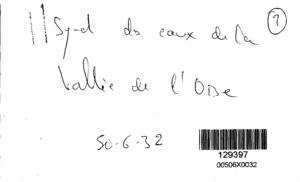 Synd des eaux de la ?
Vallée de l'Oise
50-6-32
129397
00506X0032